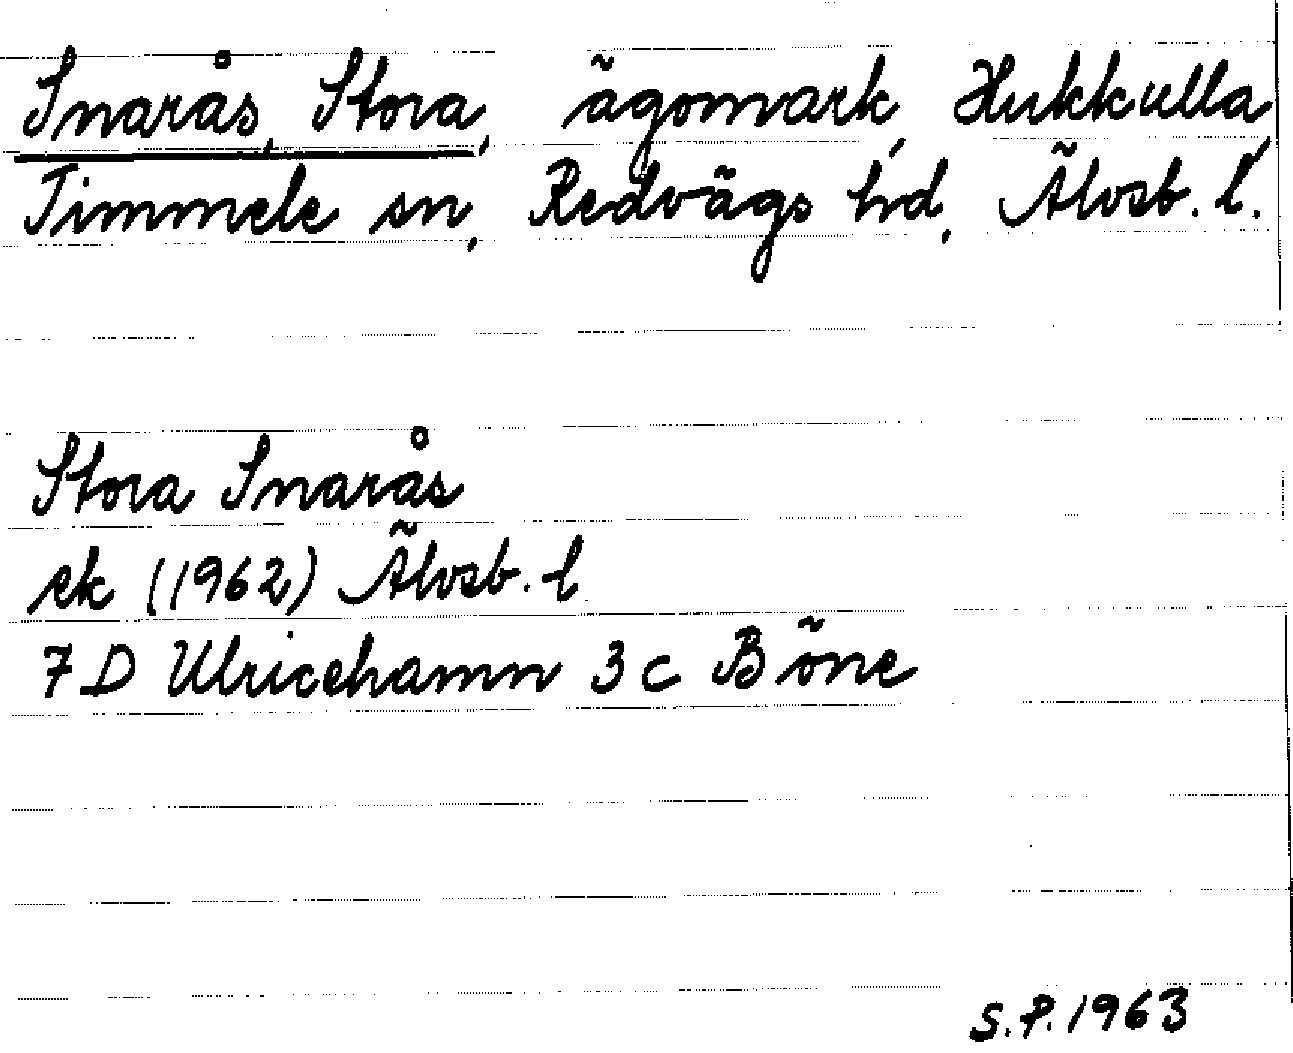 Snarås, Stora, ägomark, Hukkulla,
Timmele sn, Redvägs hd, Älvsb. l.
Stora Snarås
ek (1962) Älvsb. l
7 D Ulricehamn 3 c Böne
S.P. 1963